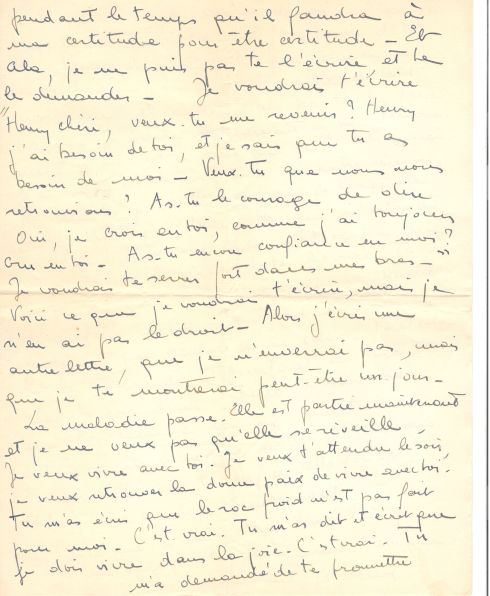 pendant le temps qu'il faudra à
ma certitude pour être certitude - Et
cela, je ne puis pas te l'écrire et te
le demander - Je voudrais t'écrire
"Henry chéri, veux-tu me revenir ? Henry
j'ai besoin de toi, et je sais que tu as
besoin de moi - Veux-tu que nous nous
retrouvions ? As-tu le courage de dire
Oui, je crois en toi, comme j'ai toujours
cru en toi - As-tu encore confiance en moi ?
Je voudrais te serrer fort dans mes bras -"
Voici ce que je voudrais t'écrire, mais je
n'en ai pas le droit - Alors j'écris une
autre lettre, que je n'enverrai pas, mais
que je te montrerai peut-être un jour -
La maladie passe. Elle est partie maintenant
et je ne veux pas qu'elle se réveille.
Je veux vivre avec toi. Je veux t'attendre le soir,
je veux retrouver la douce paix de vivre avec toi.
Tu m'as écrit que le roc froid n'est pas fait
pour moi - C'est vrai. Tu m'as dit et écrit que
je dois vivre dans la joie - C'est vrai. Tu
m'a demandé de te promettre